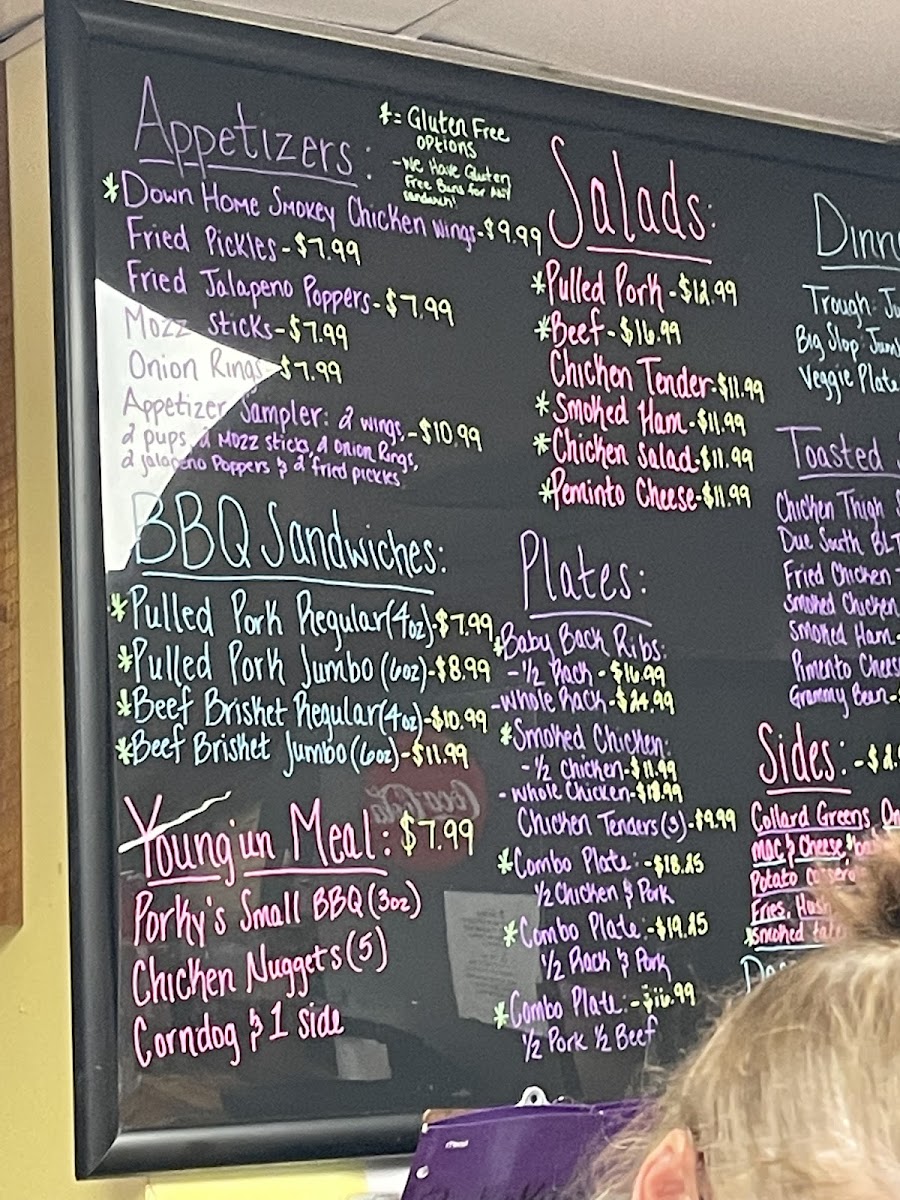 Appetizers:
*= Gluten Free
options
-We Have Gluten
Free Buns for Any
sandwich!
*Down Home Smokey Chicken wings-$9.99
Fried Pickles-$7.99
Fried Jalapeno Poppers-$7.99
Mozz sticks-$7.99
Onion Rings-$7.99
Appetizer Sampler: 2 wings,-$10.99
2 pups, 2 Mozz sticks, 2 Onion Rings,
2 jalapeno Poppers & 2 fried pickles
BBQ Sandwiches:
*Pulled Pork Regular(4oz)-$7.99
*Pulled Pork Jumbo(6oz)-$8.99
*Beef Brisket Regular(4oz)-$10.99
*Beef Brisket Jumbo(6oz)-$11.99
Young'un Meal: $7.99
Porky's Small BBQ(3oz)
Chicken Nuggets(5)
Corndog & 1 side
Salads:
*Pulled Pork-$12.99
*Beef-$16.99
Chicken Tender-$11.99
*Smoked Ham-$11.99
*Chicken Salad-$11.99
*Peminto Cheese-$11.99
Plates:
*Baby Back Ribs:
-1/2 Rack-$16.99
-whole Rack-$24.99
*Smoked Chicken:
-1/2 Chicken-$11.99
-whole Chicken-$18.99
Chicken Tenders(5)-$9.99
*Combo Plate:-$18.25
1/2 Chicken & Pork
*Combo Plate:-$19.25
1/2 Rack & Pork
*Combo Plate:-$16.99
1/2 Pork 1/2 Beef
Dinn
Trough: Ju
Big Slop: Jum
Veggie Plate
Toasted
Chicken Thigh
Due South BLT
Fried Chicken
Smoked Chicken
Smoked Ham-
Pimento Chees
Grammy Bean-
Sides:-$2.
Collard Greens, On
Mac & Cheese,
Potato
Fries, Hush
*Smoked
Coca-Cola